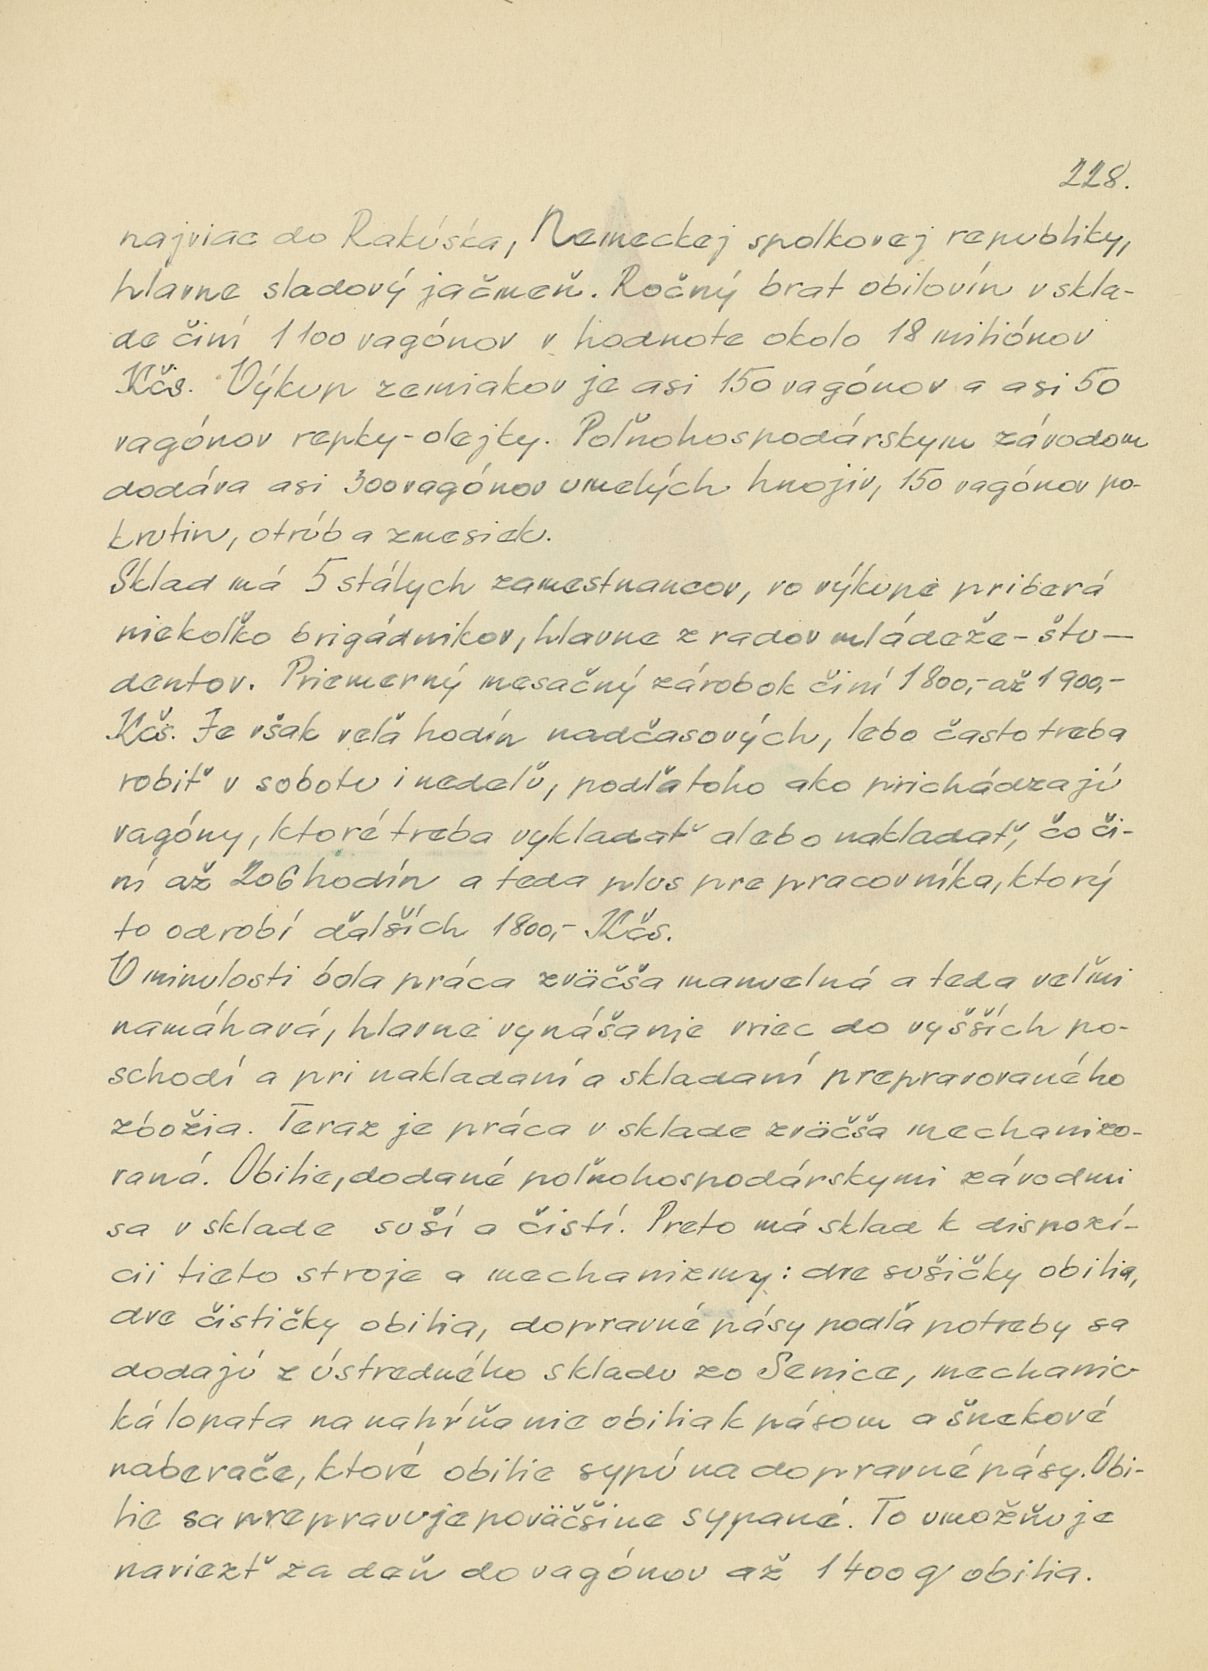 228.
najviac do Rakúska, Nemeckej spolkovej republiky,
hlavne sladový jačmeň. Ročný brat obilovín v skla-
de činí 1100 vagónov v hodnote okolo 18 miliónov
Kčs. Výkup zemiakov je asi 150 vagónov a asi 50
vagónov repky-olejky. Poľnohospodárskym závodom
dodáva asi 300 vagónov umelých hnojív, 150 vagónov po-
krutin, otrúb a zmesiek.
Sklad má 5 stálych zamestnancov, vo výkupe priberá
niekoľko brigádnikov, hlavne z radov mládeže-štu-
dentov. Priemerný mesačný zárobok činí 1800,- až 1900,-
Kčs. Je však veľa hodín nadčasových, lebo často treba
robiť v sobotu i nedeľu, podľa toho ako prichádzajú
vagóny, ktoré treba vykladať alebo nakladať, čo či-
ní až 206 hodín a teda plus pre pracovníka, ktorý
to odrobí ďalších 1800,- Kčs.
V minulosti bola práca zväčša manuelná a teda veľmi
namáhavá, hlavne vynášanie vriec do vyšších po-
schodí a pri nakladaní a skladaní prepravovaného
zbožia. Teraz je práca v sklade zväčša mechanizo-
vaná. Obilie, dodané poľnohospodárskymi závodmi
sa v sklade suší a čistí. Preto má sklad k dispozí-
cii tieto stroje a mechanizmy: dve sušičky obilia,
dve čističky obilia, dopravné pásy podľa potreby sa
dodajú z ústredného skladu zo Senice, mechanic-
ká lopata na nahŕňanie obilia k pásom a šnekové
naberače, ktoré obilie sypú na dopravné pásy. Obi-
lie sa prepravuje poväčšine sypané. To umožňuje
naviezť za deň do vagónov až 1400 q obilia.